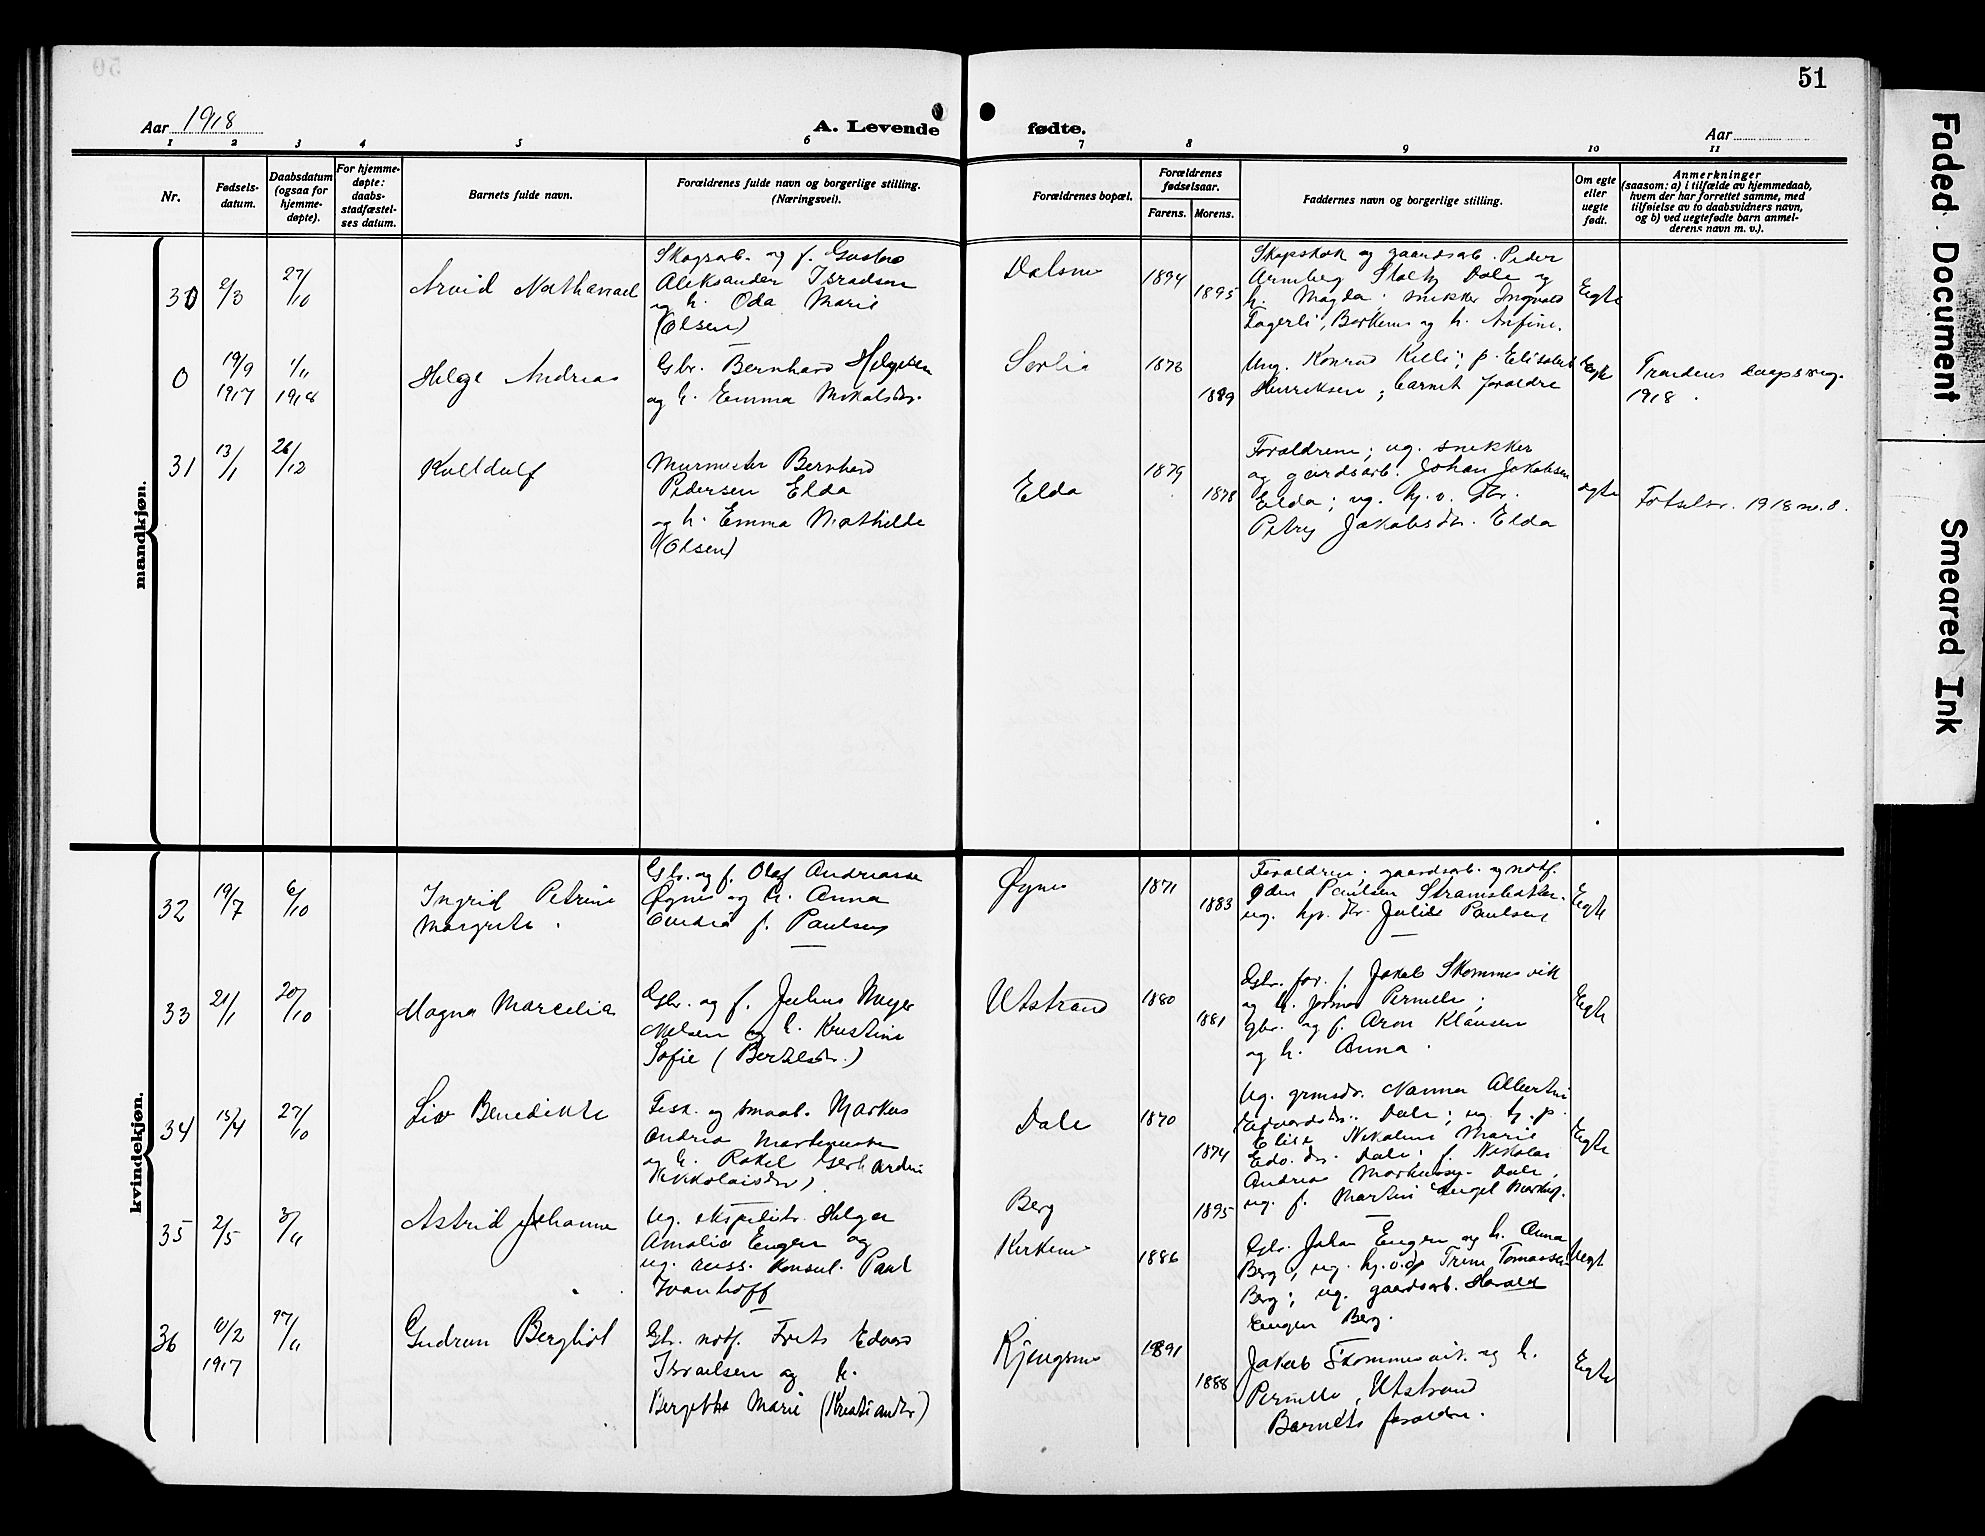 51
Aar 1918
A. Levende fødte.
Aar
1 2 3 4 5 6 7 8 9 10 11
Nr.
Fødsels-
datum.
Daabsdatum
(ogsaa for
hjemme-
døpte).
For hjemme-
døpte:
daabs-
stadfæstel-
ses datum.
Barnets fulde navn.
Forældrenes fulde navn og borgerlige stilling.
(Næringsvei).
Forældrenes bopæl.
Forældrenes
fødselsaar.
Farens. Morens.
Faddernes navn og borgerlige stilling.
Om egte
eller
uegte
født.
Anmerkninger
(saasom: a) i tilfælde av hjemmedaab,
hvem der har forrettet samme, med
tilføielse av to daabsvidners navn,
og b) ved uegtefødte barn anmel-
derens navn m. v.).
mandkjøn.
30
2/3
27/10
Arvid Nathanael
Skogsarb. og f. Gustav
Aleksander Israelsen
og h. Oda Marie
(Olsen)
1894
1895
gaardsarb. Peder
Dale og
h. Magda; snekker Ingvald
Fagerli, og h. Anfine.
Egte
0
19/9
1917
1/11
1918
Helge Andreas
Gbr. Bernhard Helgesen
og h. Emma Nikolsdr.
Sørlia
1873
1889
Ung. Konrad f. Elisabet
Henriksen; barnets forældre
Egte
Trondens daapsreg.
1918.
31
13/1
26/12
Kveldulf
Murmester Bernhard
Pedersen Elda
og h. Emma Mathilde
(Olsen)
Elda
1879
1878
Forældrene; ug. snekker
og gaardsarb. Johan Jakobsen
Elda; ug. hj.v. dtr.
Petry Jakobsdtr. Elda
egte
1918
kvindekjøn.
32
19/7
6/10
Ingrid Petrine
Margrete.
Gbr. og f. Olaf Andreassen
Øynes og h. Anna
f. Paulsen
Øynes
1871
1883
Forældrene; gaardsarb. og notf.
Paulsen
ug. hj. dtr. Julie Paulsen
Egte
33
21/1
20/10
Magna Marcelie
Gbr. og f. Julius Meyer
Nielsen og h. Kristine
Sofie (Bertelsdr.)
Utstrand
1880
1881
Gbr. for. f. Jakob Skommesvik
og h. Pernille;
gbr. og f. Aron Klausen
og h. Anna.
Egte
34
15/4
27/10
Liv Benedikte
Fisk. og smaab. Markus
Andreas Martinussen
og h. Rakel Gerhardine
(Nikolaisdr)
Dale
1870
1874
Ug. grmsdr. Nanna Albertine
Edvardsdr. Dale; ug. hj. p.
Elise Nikoline Marie
Edv. dr. Dale; f. Nikolai
Andreas Markussen Dale,
ug. f. Martin Engel Markus.
Egte
35
2/5
3/11
Astrid Johanne
Ug. ekspeditr. Helga
Amalie Engen og
ug. Konsul. Paul
Ivanhoff
Berg
Kirkenes
1895
1886
Gbr. Johan Engen og h. Anna
Berg; ug. Trine Tomassen
Berg; ug. gaardsarb. Harald
Engen Berg.
Uegt
36
10/2
1917
17/11
Gudrun Bergliot
Gbr. notf. Frits Edvard
Israelsen og h.
Bergitte Marie (Kristiansdr)
Kjengsnes
1891
1888
Jakob Skommesvik. og h.
Pernille, Utstrand
Barnets forældre.
Egte
Faded Document
Smeared Ink